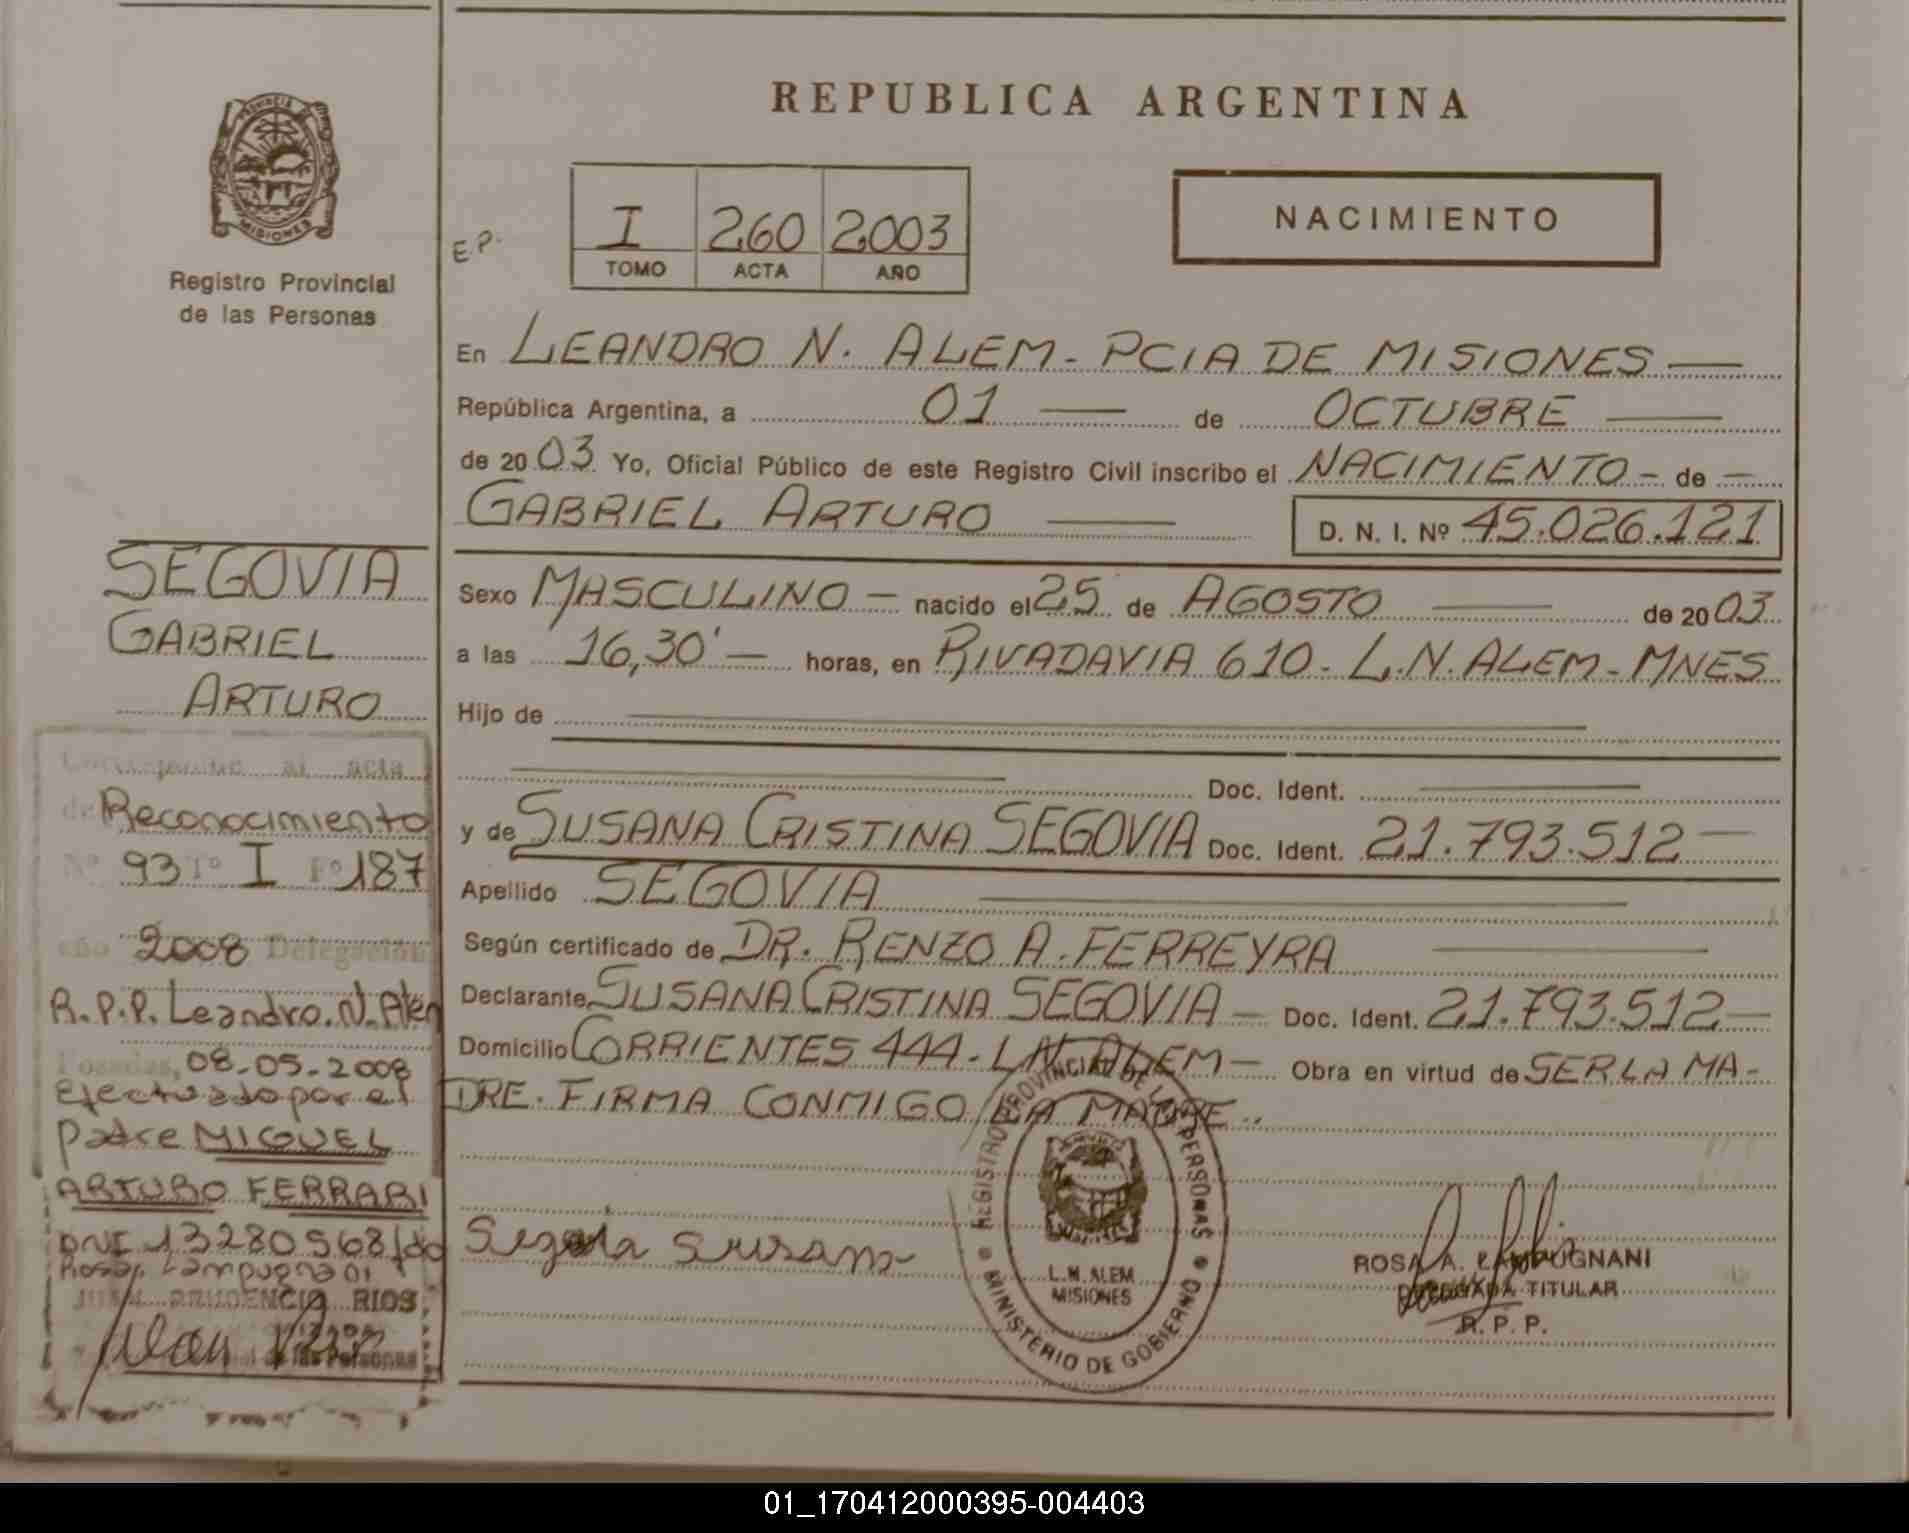 REPUBLICA ARGENTINA
PROVINCIA DE
MISIONES
Registro Provincial
de las Personas
E.P.
I 260 2003
TOMO ACTA AÑO
NACIMIENTO
En LEANDRO N. ALEM - PCIA DE MISIONES —
República Argentina, a 01 — de OCTUBRE —
de 2003 Yo, Oficial Público de este Registro Civil inscribo el NACIMIENTO - de —
GABRIEL ARTURO — D. N. I. Nº 45.026.121
SEGOVIA
GABRIEL
ARTURO
Sexo MASCULINO — nacido el 25 de AGOSTO — de 2003
a las 16,30' — horas, en RIVADAVIA 610 - L.N. ALEM - MNES
Hijo de —
— Doc. Ident. —
y de SUSANA CRISTINA SEGOVIA Doc. Ident. 21.793.512 —
Apellido SEGOVIA —
Según certificado de DR. RENZO A. FERREYRA —
Declarante SUSANA CRISTINA SEGOVIA — Doc. Ident. 21.793.512 —
Domicilio CORRIENTES 444 - L.N. ALEM — Obra en virtud de SER LA MA-
DRE. FIRMA CONMIGO LA MADRE..
Corresponde al acta
de Reconocimiento
Nº 93 Tº I Fº 187
año 2008 Delegación
R.P.P. Leandro.N.Alem
Posadas, 08-05-2008
efectuado por el
padre MIGUEL
ARTURO FERRARI
DNI 13280568 fdo
Rosa Lampugnani
JUAN PRUDENCIO RIOS
de las Personas
Segovia Susana
REGISTRO PROVINCIAL DE LAS PERSONAS
L.N. ALEM
MISIONES
MINISTERIO DE GOBIERNO
ROSA A. LAMPUGNANI
DELEGADA TITULAR
R. P. P.
01_170412000395-004403